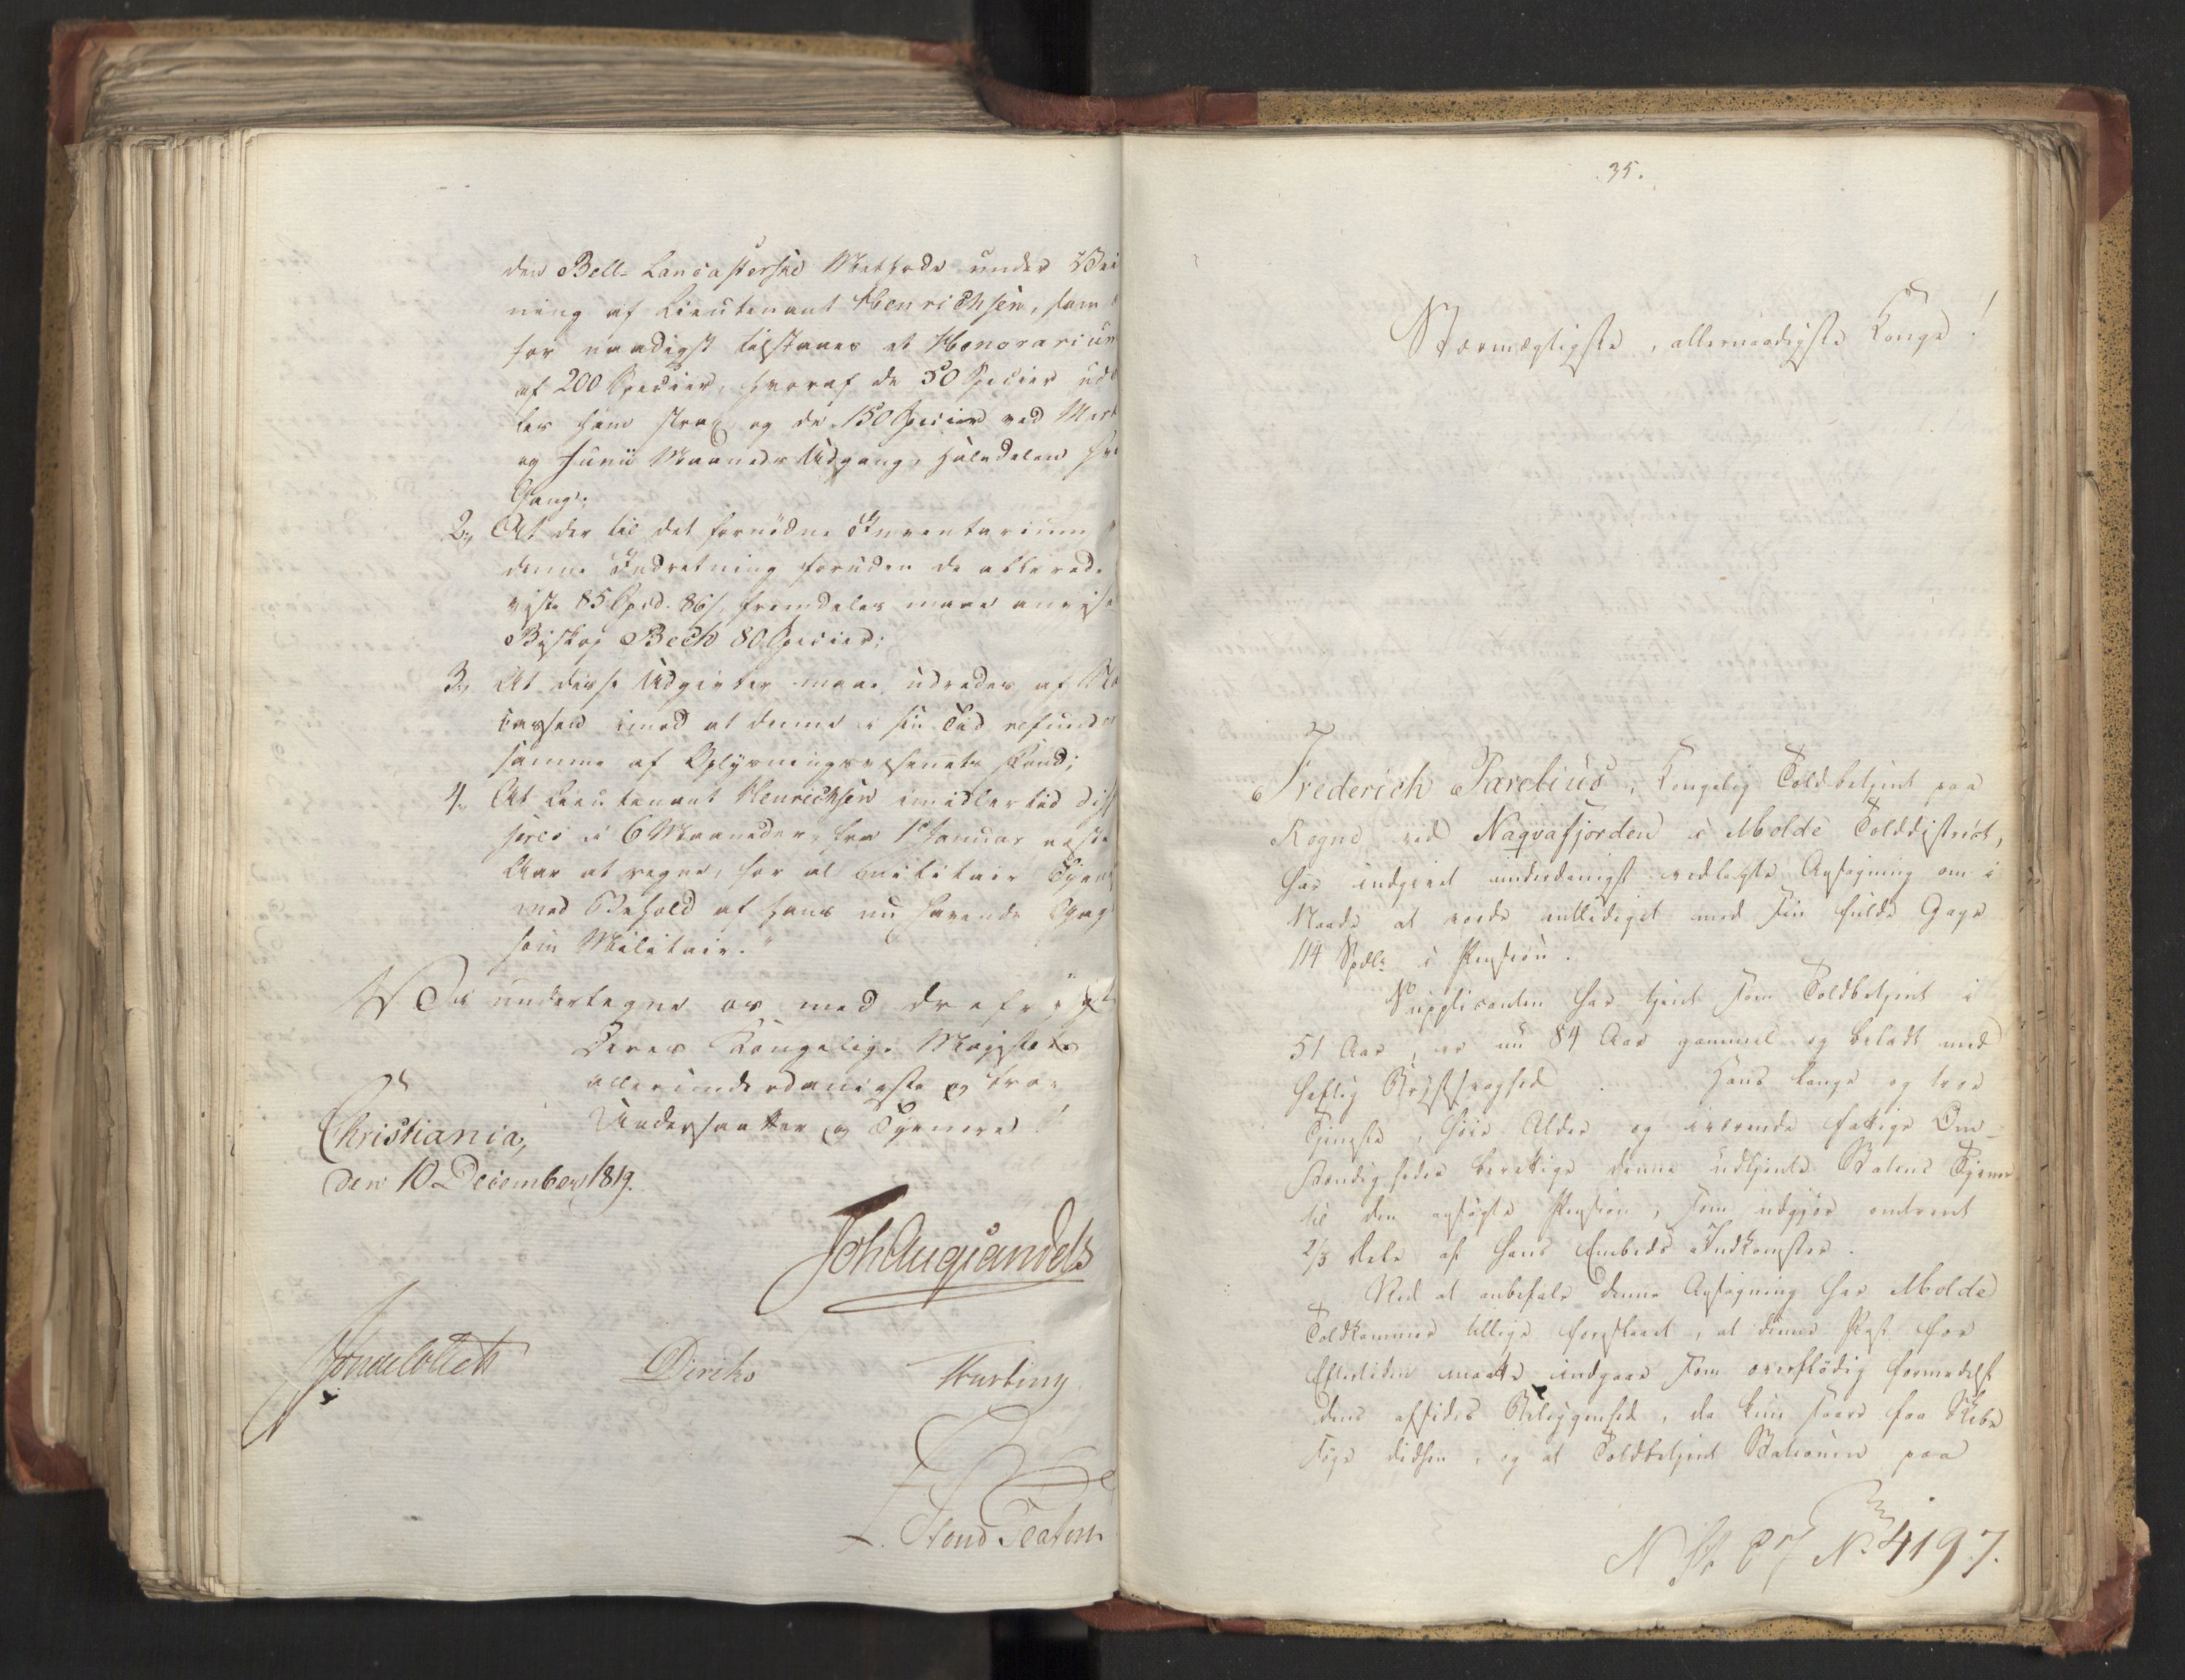 den Bell-Lancasterske Methode under Vei
ning af Lieutenant Henrichsen, som
for naadigst tilstaaes et Honorarium
af 200 Specier, hvoraf de 50 Specier ud
les ham strax og de 150 Specier ved Mart
og Junii Maaneds Udgang, Halvdelen hver
Gang;
2, At der til det fornødne Inventarium
denne Indretning foruden de allerede
viste 85 Spd. 86 s, fremdeles maae anvise
Biskop Bech 80 Specier;
3, At disse Udgivter maae udredes af
cassen imod at denne i sin Tid refunderes
samme af Oplysningsvæsenets Fond;
4, At Lieutenant Henrichsen imidlertid
seres i 6 Maaneder, fra 1 Januar næste
Aar at regne, for al militair Tjeneste
med Behold af hans nu havende Gage
som Militair."
Vi undertegne os med
Deres Kongelige Majestets
allerunderdanigste og troe
Undersaatter og Tjenere!
Christiania,
den 10 December 1819.
Joh Aug Sandels
Jonas Collett
Diriks
Motzfeldt
35.
Stormægtigste, allernaadigste Konge!
Frederich Parelius, Kongelig Toldbetjent paa
Rogne ved Naqvafjorden i Molde Tolddistrict,
har indgivet underdanigst vedlagte Ansøgning om i
Naade at vorde entlediget med sin fulde Gage
114 Spdlr i Pension.
Supplicanten har tjent som Toldbetjent i
51 Aar, er nu 84 Aar gammel og beladt med
heftig Brystsvaghed. Hans lange og troe
Tjeneste, høie Alder og iværende fattige Om-
stændigheder berettige denne udtjente Statens Tjener
til den ansøgte Pension, som udgjør omtrent
2/3 Dele af hans Embeds Indkomster.
Ved at anbefale denne Ansøgning har Molde
Toldkammer tillige foreslaaet, at denne Post for
Eftertiden maatte indgaae som overflødig formedelst
dens afsides Beliggenhed, da kun saare faa Skibe
søge didhen, og at Toldbetjent Stationen paa
No 4197.